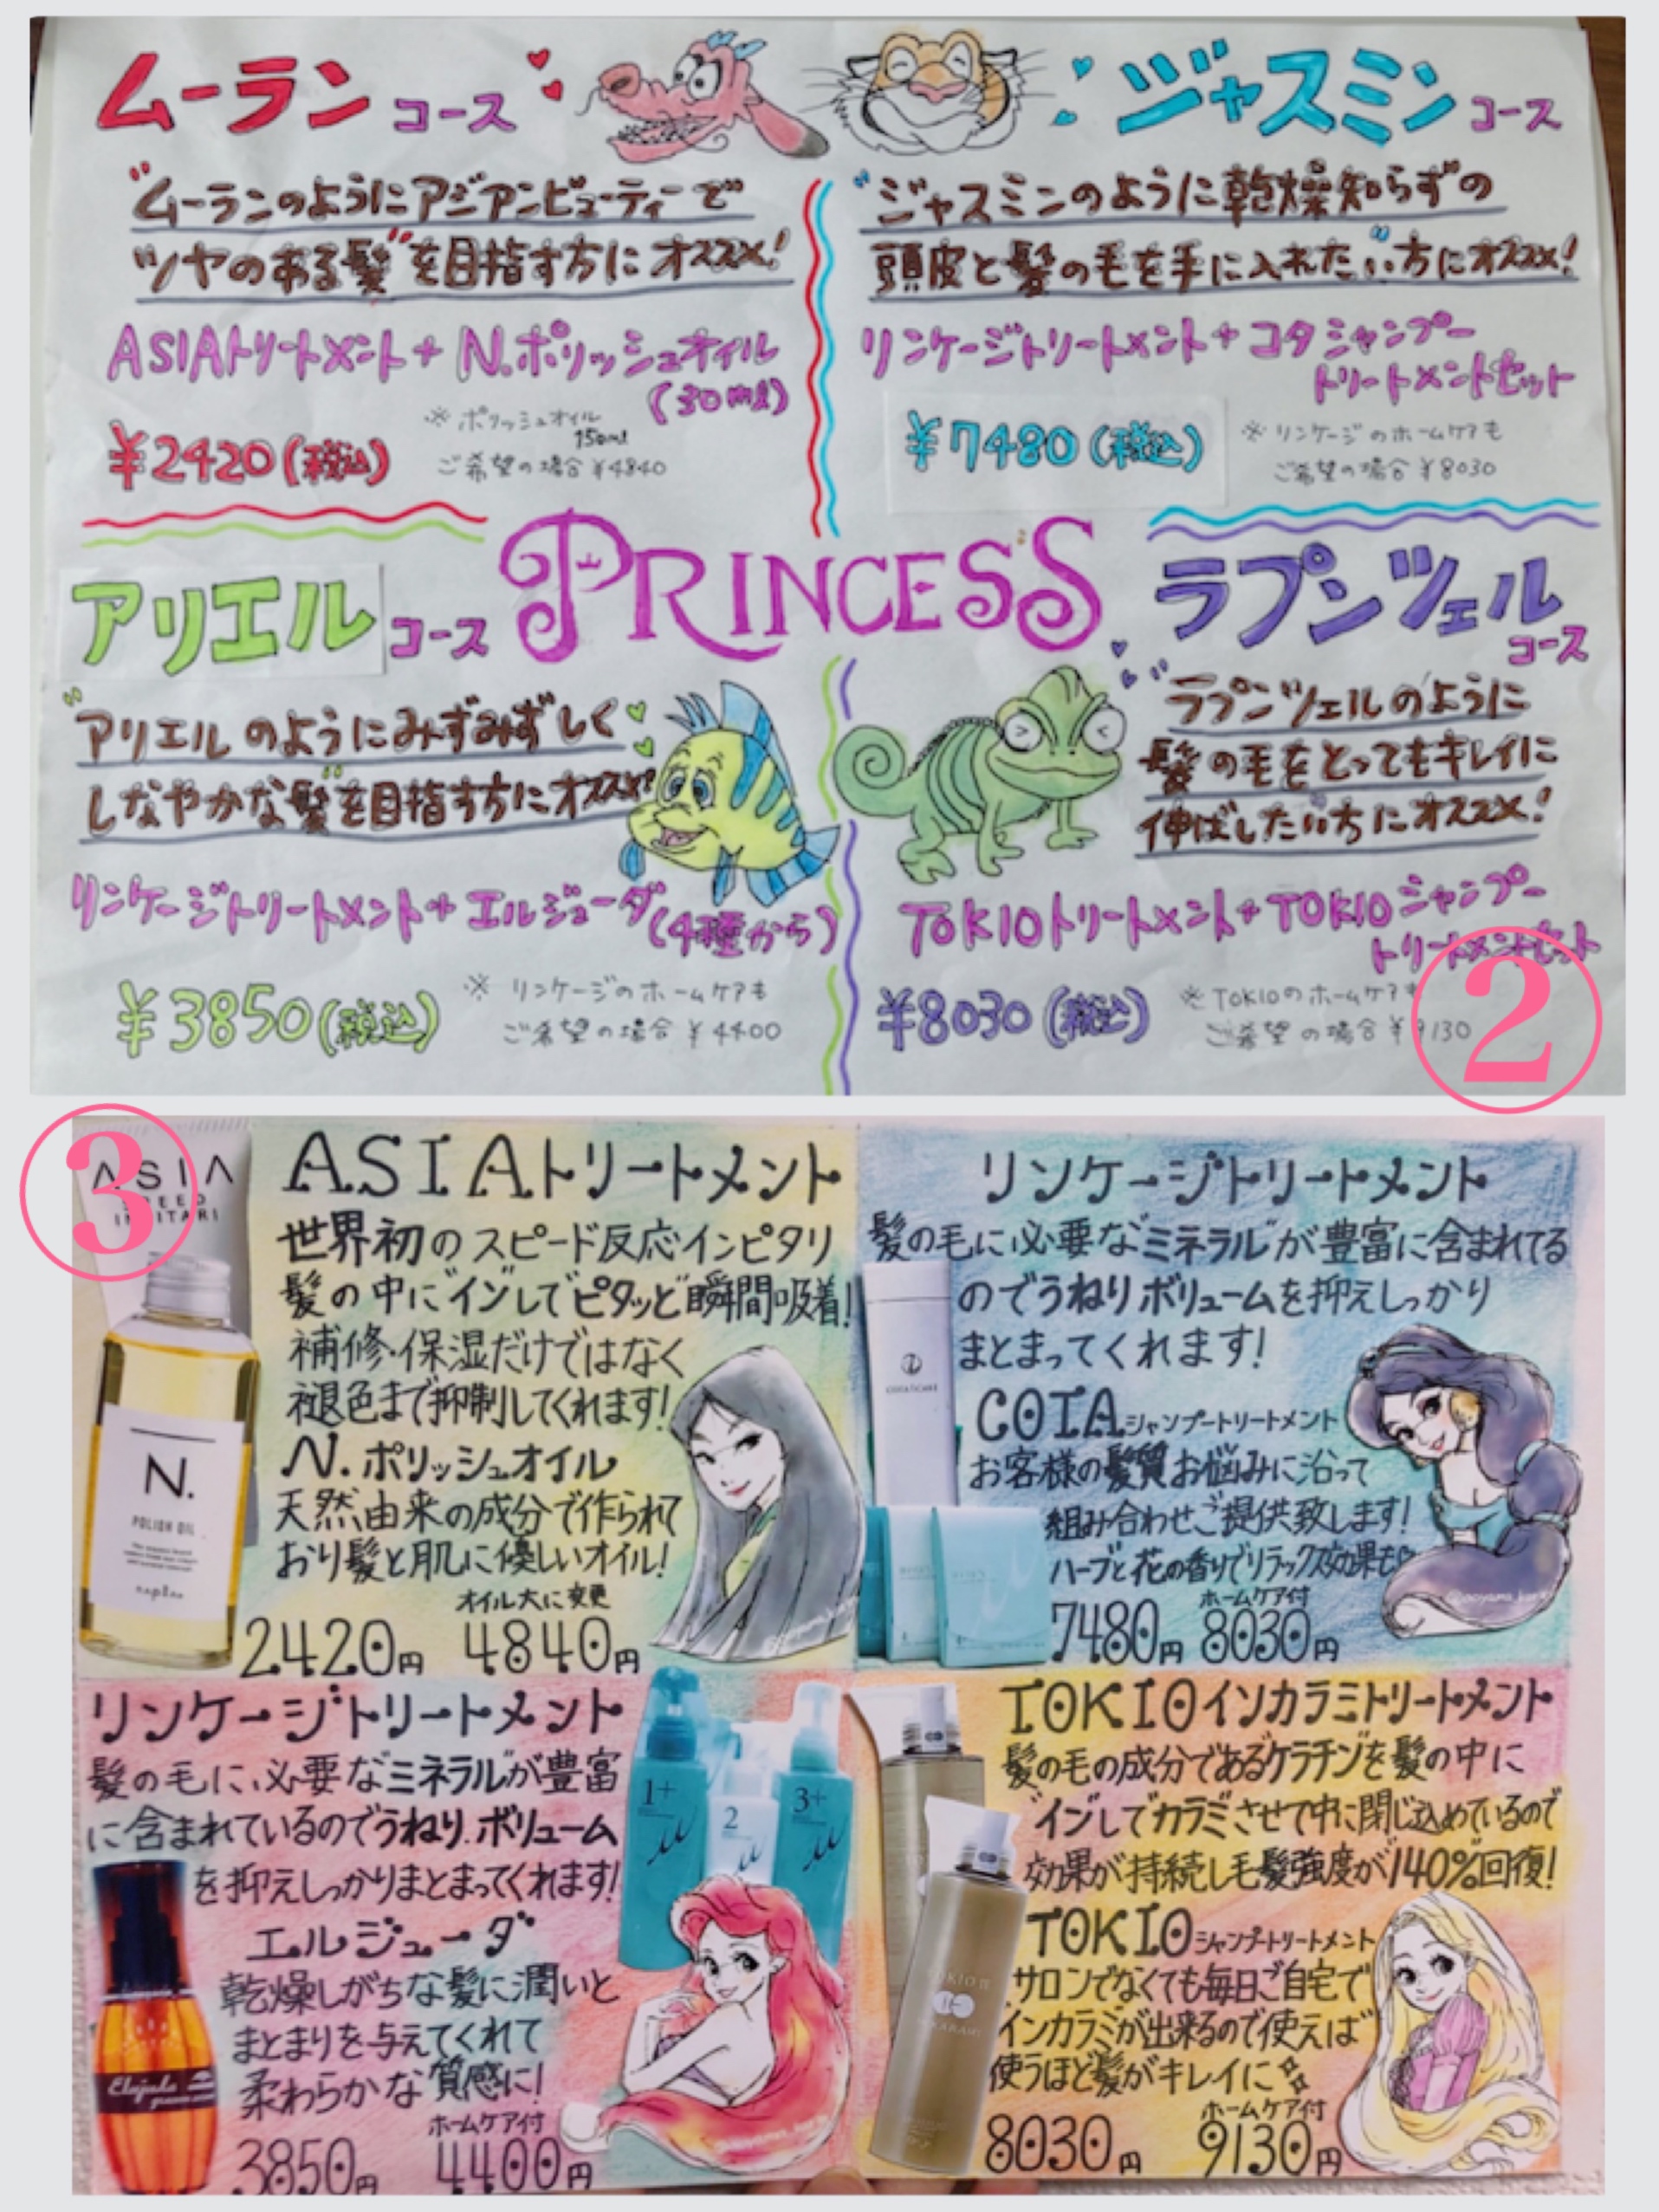 ムーラン コース
"ムーランのようにアジアンビューティーで
ツヤのある髪"を目指す方にオススメ!
ASIAトリートメント+N.ポリッシュオイル
(30ml)
¥2420(税込)
※ポリッシュオイル
150ml
ご希望の場合¥4840
ジャスミン コース
"ジャスミンのように乾燥知らずの
頭皮と髪の毛を手に入れたい"方にオススメ!
リンケージトリートメント+コタシャンプー
トリートメントセット
¥7480(税込)
※リンケージのホームケアも
ご希望の場合¥8030
PRINCESS
アリエル コース
"アリエルのようにみずみずしく
しなやかな髪"を目指す方にオススメ!
リンケージトリートメント+エルジューダ
(4種から)
¥3850(税込)
※リンケージのホームケアも
ご希望の場合¥4400
ラプンツェル
コース
"ラプンツェルのように
髪の毛をとってもキレイに
伸ばしたい"方にオススメ!
TOKIOトリートメント+TOKIOシャンプー
トリートメントセット
¥8030(税込)
※TOKIOのホームケアも
ご希望の場合¥9130
②
③
ASIA
ASIAトリートメント
世界初のスピード反応インピタリ
髪の中に"イン"して"ピタッ"と瞬間吸着!
補修・保湿だけではなく
褪色まで抑制してくれます!
N.ポリッシュオイル
天然由来の成分で作られて
おり髪と肌に優しいオイル!
オイル大に変更
2420円 4840円
N.
POLISH OIL
napla
リンケージトリートメント
髪の毛に必要な"ミネラル"が豊富に含まれてる
のでうねりボリュームを抑えしっかり
まとまってくれます!
COTAシャンプートリートメント
お客様の髪質お悩みに沿って
組み合わせご提供致します!
ハーブと花の香りでリラックス効果も♡
ホームケア付
7480円 8030円
リンケージトリートメント
髪の毛に必要な"ミネラル"が豊富
に含まれているのでうねり、ボリューム
を抑えしっかりまとまってくれます!
エルジューダ
乾燥しがちな髪に潤いと
まとまりを与えてくれて
柔わらかな質感に!
ホームケア付
3850円 4400円
1+
2
3+
Elujuda
TOKIOインカラミトリートメント
髪の毛の成分である"ケラチン"を髪の中に
"イン"して"カラミ"させて中に閉じ込めているので
効果が持続し毛髪強度が140%回復!
TOKIOシャンプートリートメント
サロンでなくても毎日ご自宅で
インカラミが出来るので使えば
使うほど髪がキレイに
ホームケア付
8030円 9130円